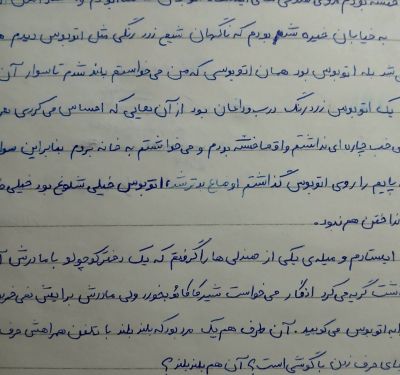 به خیابان خیره شده بودم که ناگهان شیع زرد رنگی مثل اتوبوس دیدم
شد بله اتوبوس بود همان اتوبوسی که من می‌خواستم بلند شدم تا سوار آن
یک اتوبوس زرد رنگ درب و داغان بود از آن‌هایی که احساس می‌کردی هر
خب چاره ای نداشتم واقعا خسته بودم و می‌خواستم به خانه بروم بنابراین سوار
پایم را روی اتوبوس گذاشتم اوضاع بدتر شد، اتوبوس خیلی شلوغ بود خیلی
انداختن هم نبود.
ایستادم و میله‌ی یکی از صندلی ها را گرفتم که یک دختر کوچولو با مادرش
داشت گریه می‌کرد انگار می‌خواست شیرکاکائو بخورد ولی مادرش برایش نمی‌خرید
به اتوبوس می‌کوبید. آن طرف هم یک مرد بود که بلند بلند با تلفن همراهش حرف
حرف زدن با گوشی است؟ آن هم بلند بلند؟